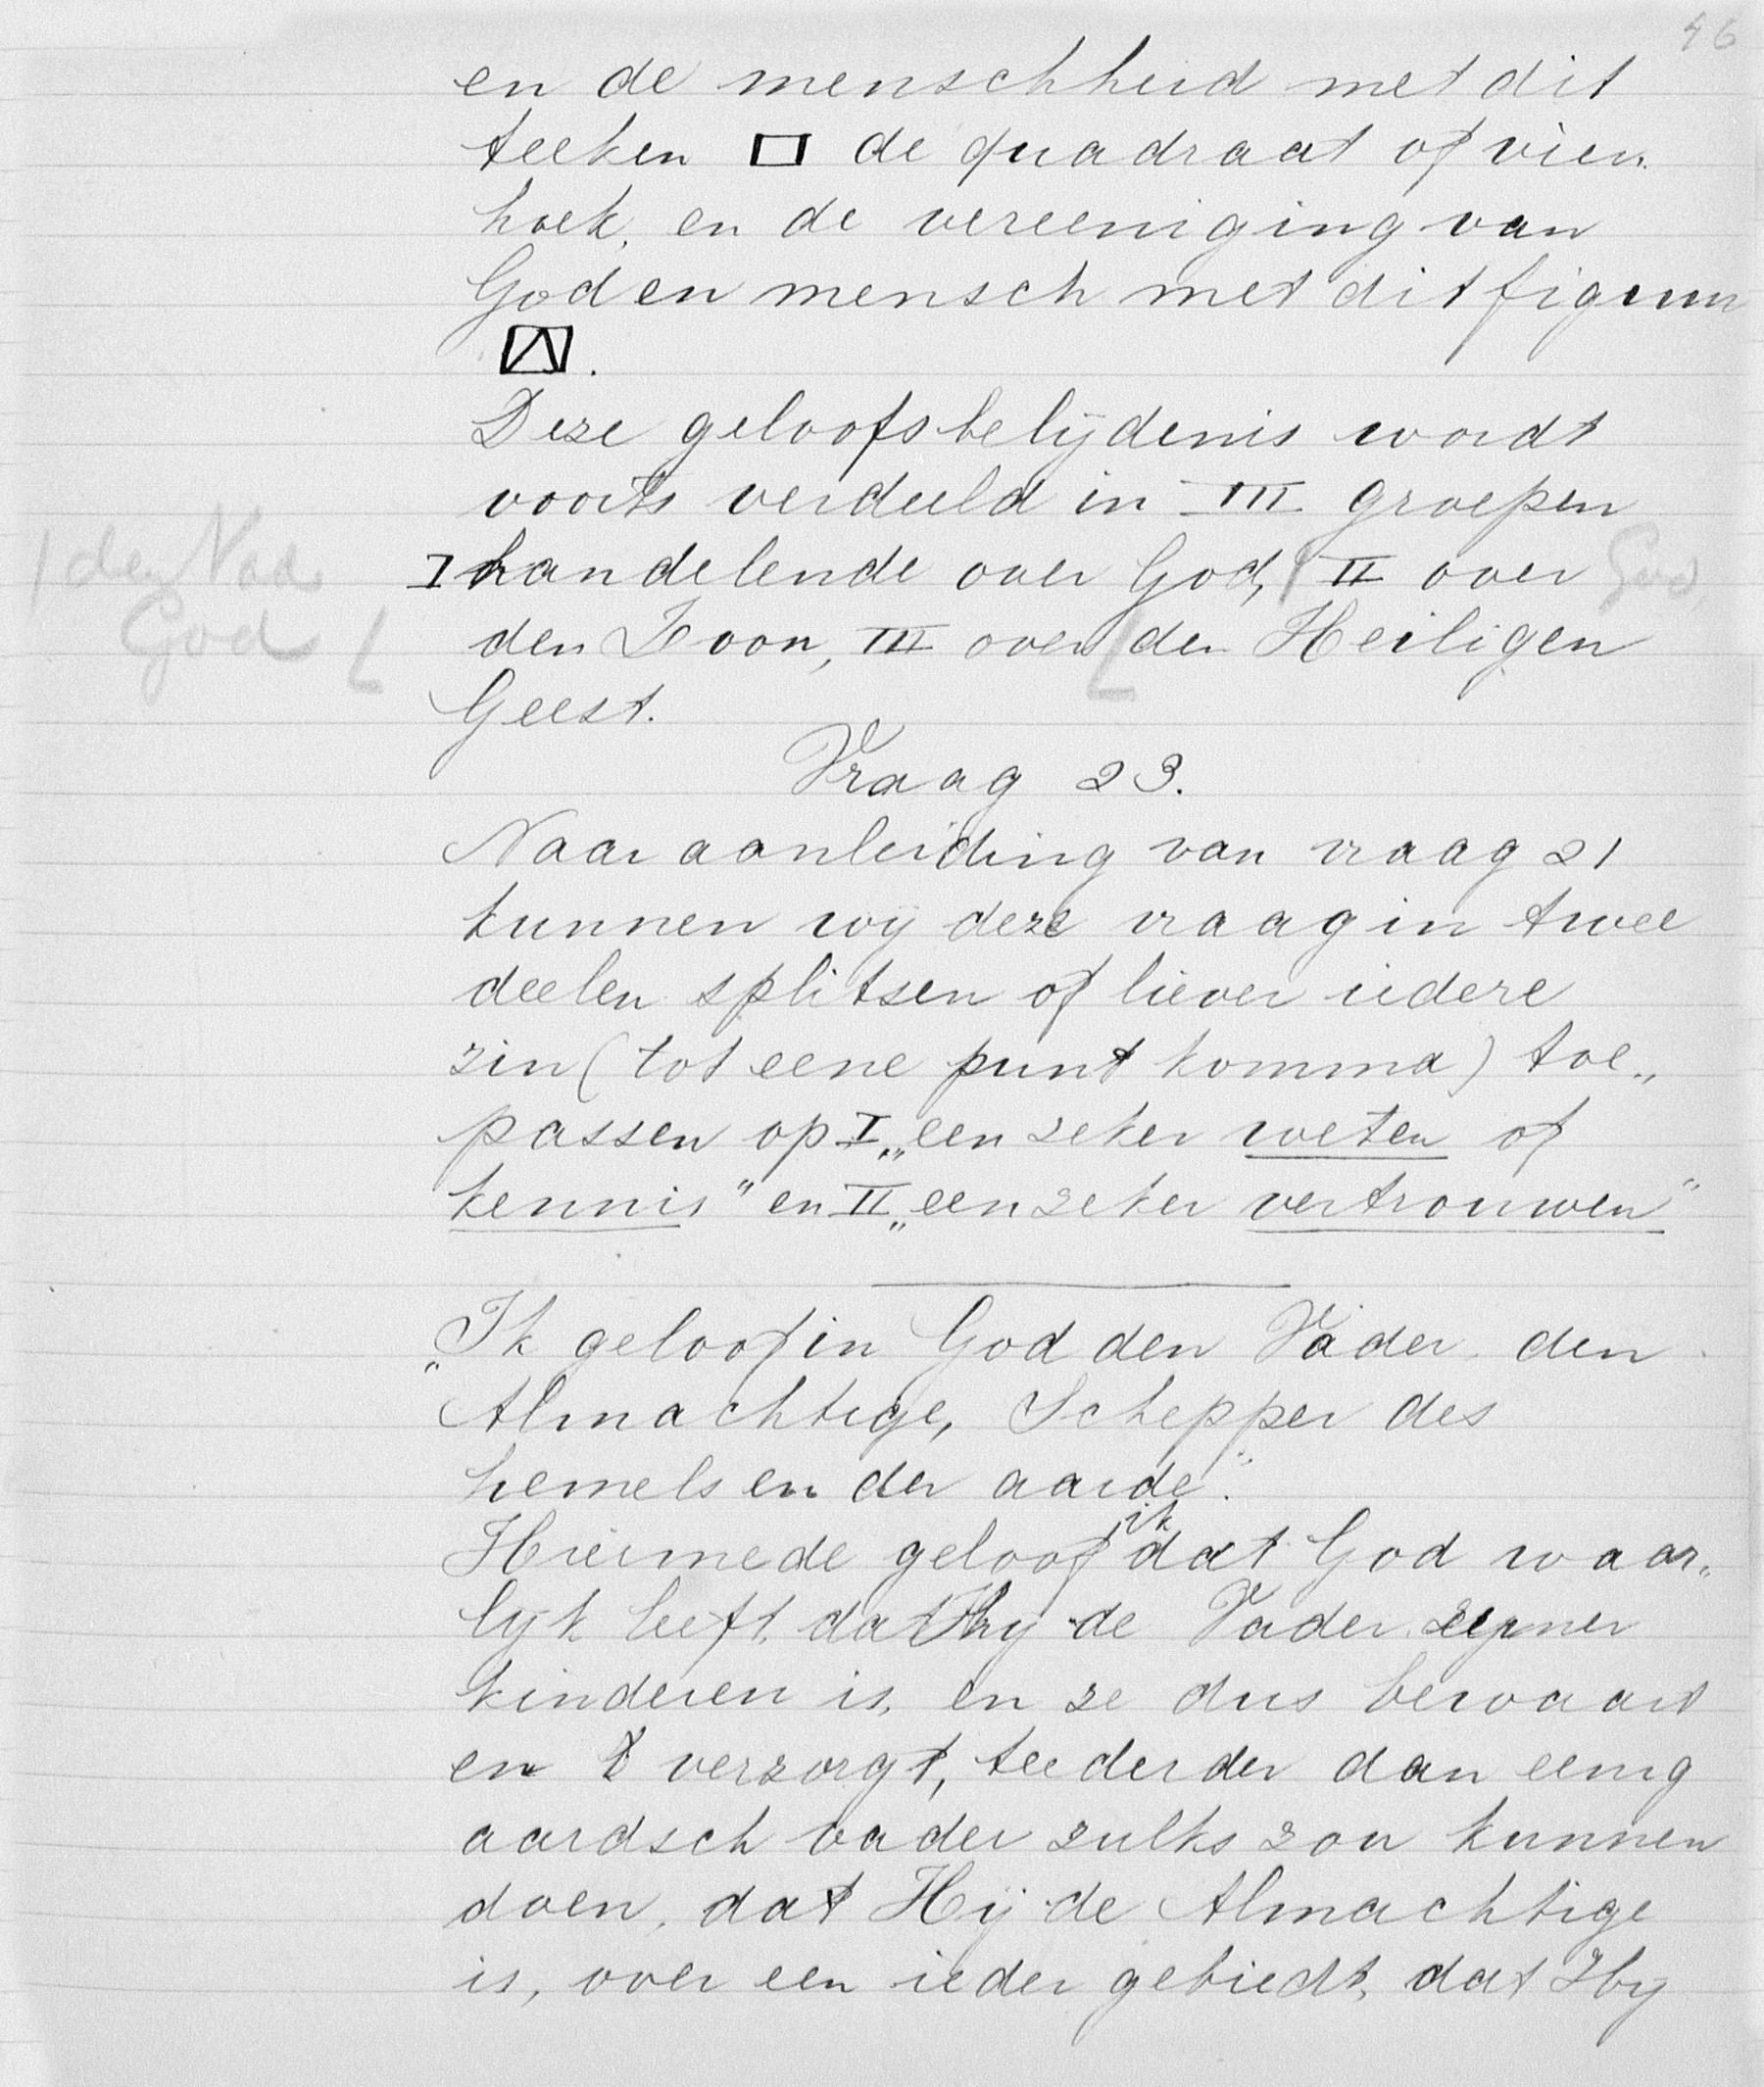 46
en de menschheid met dit
teeken □ de quadraat of vier„
hoek, en de vereeniging van
God en mensch met dit figuur
.
Deze geloofsbelijdenis wordt
voorts verdeeld in III groepen
I handelende over God, | II over God
den Zoon, III over L den Heiligen
Geest.
| den Vad
God L
Vraag 23.
Naar aanleiding van vraag 21
kunnen wij deze vraag in twee
deelen splitsen of liever iedere
zin (tot eene punt komma) toe„
passen op I „een zeker weten of
kennis" en II „een zeker vertrouwen"
„Ik geloof in God den Vader, den
Almachtige, Schepper des
hemels en der aarde".
Hiermede geloof ik dat God waar„
lijk leeft, dat Hij de Vader zijner
kinderen is, en ze dus bewaart
en verzorgt, teederder dan eenig
aardsch vader zulks zou kunnen
doen, dat Hij de Almachtige
is, over een ieder gebiedt, dat Hij